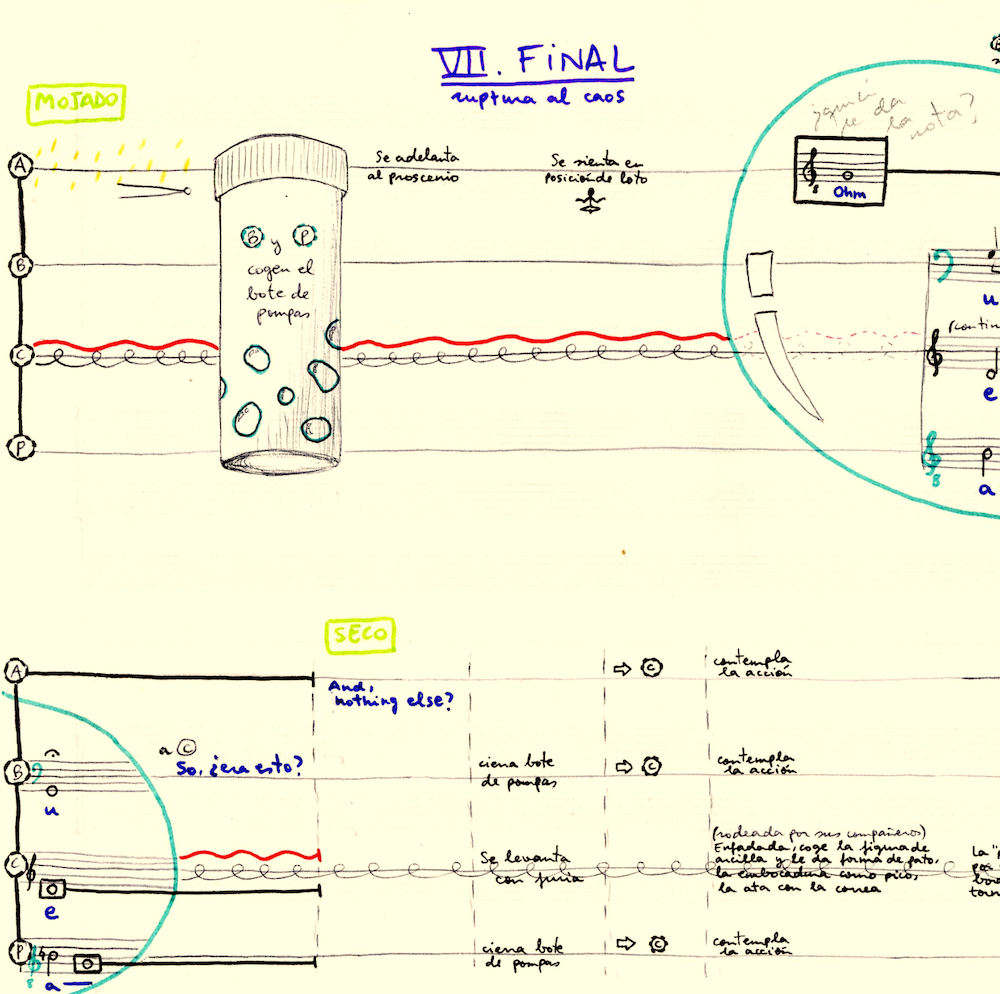 VII. FINAL
ruptura al caos
MOJADO
A
Se adelanta
al proscenio
Se sienta en
posición de loto
¿quién
le da
la nota?
8
Ohm
B y P
cogen el
bote de
pompas
B
u
C
(contin
e
P
8
a
SECO
A
And,
nothing else?
C
contempla
la acción
B
u
a C
So, ¿era esto?
cierra bote
de pompas
C
contempla
la acción
C
e
Se levanta
con furia
(rodeada por sus compañeros)
Enfadada, coge la figura de
arcilla y le da forma de pato,
la embocadura como pico,
la ata con la correa
La "
por
bor
torn
P
8
a
cierra bote
de pompas
C
contempla
la acción